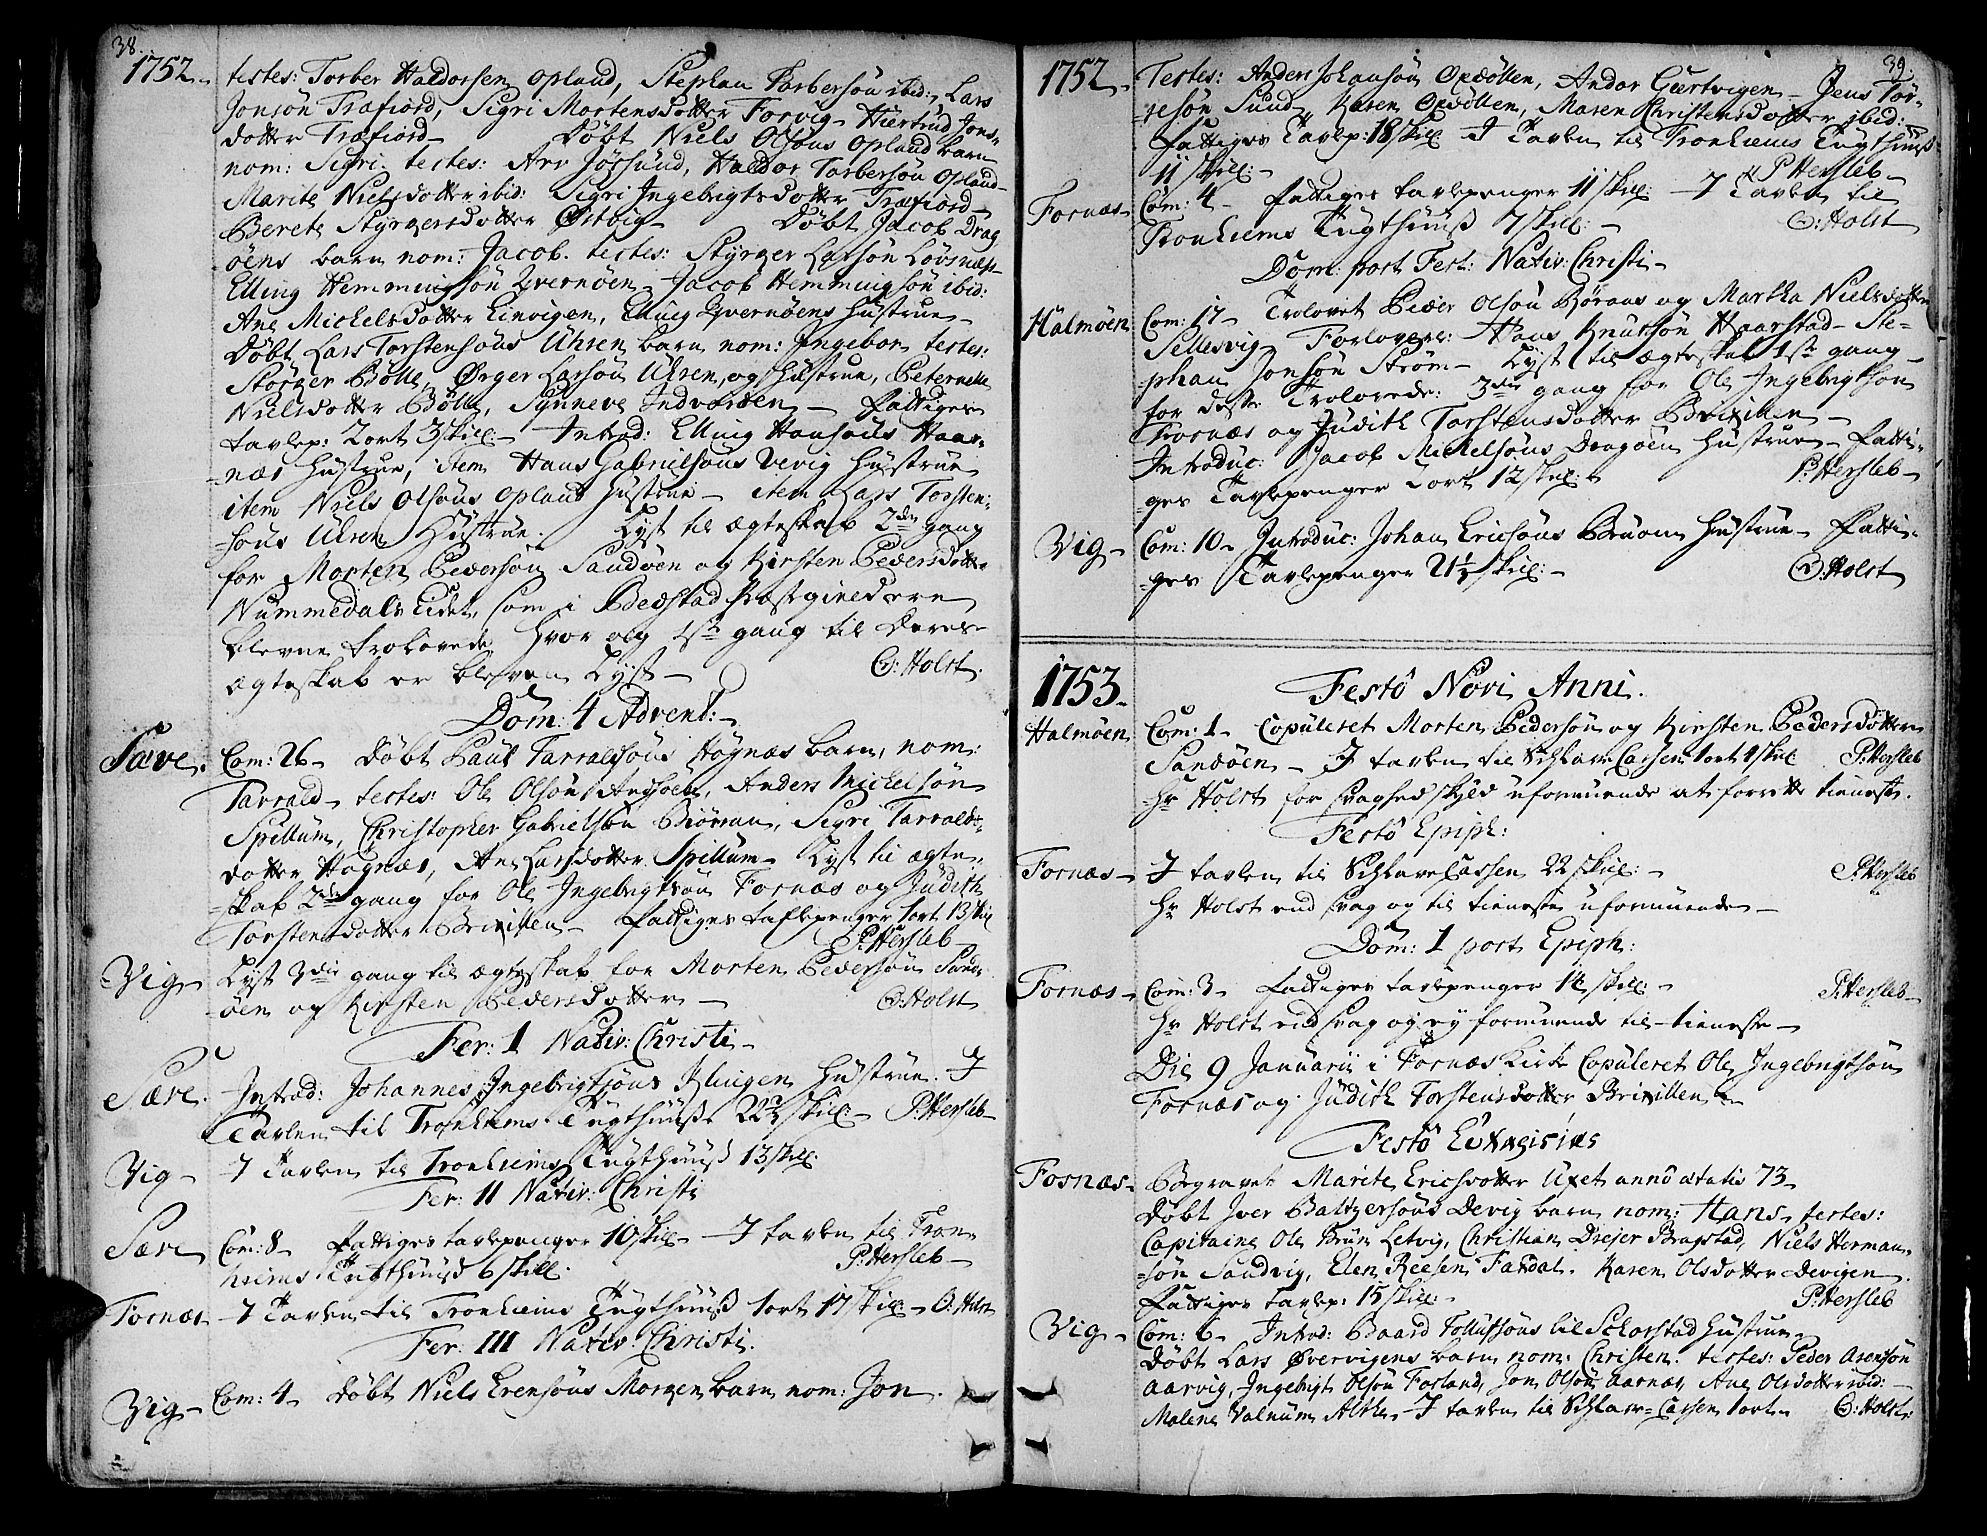 38.
1752.
testes: Torber Haldorsen opland, Stephan Torbersön ibid:, Lars
Jonsön Træfiord, Sigri Mortensdotter Forvig, Hiertrud Jons-
dotter Træfiord. Döbt Niels Olsöns opland barn
nom: Sigri. testes: Arn Jörsund, Haldor Torbersön opland
Marite Nielsdotter ibid: Sigri Ingebrigtsdotter Træfiord
Beret Styrgersdotter Østbig. Döbt Jacob Drag
öens barn nom: Jacob. testes: Styrger Larsön Lövsnæs
Elling Hemmingsön Qvernöen, Jacob Hemmingsön ibid:
Ane Mickelsdotter Einvigen, Elling Qvernöens hustrue
Döbt Lars Torstensöns Uhren barn nom: Ingebor testes:
Störger Bölle, Ørger Larsön Uhren, og hustrue, Peternelle
Nielsdotter Bölle, Synneve Indvorden. fattiges
tavlep: 2 ort 3 skill: Introd: Elling Hansöns Haar-
næs hustrue, item Hans Gabrielsöns Vevig hustrue
item Niels Olsöns opland hustrue. item Lars Torsten-
söns Uhren hustrue. Lyst til ægteskab 2den gang
for Morten Pedersön Sandöen og Kirsten Pedersdotter
Nummedals Eidet, som i Bedstad Præstegield ere
blevne trolovede, hvor og 1ste gang til deres
ægteskab er bleven Lyst. O: Holst.
Dom: 4 Advent:
Sæve.
Com: 26. Döbt Paul Tarraldsöns Högnæs barn, nom:
Tarrald. testes: Ole Olsön Andsöen, Anders Michelsön
Spillum, Christopher Gabrielsön Biöraan, Sigri Tarralds-
dotter Hognæs, Ane Larsdotter Spillum. Lyst til ægte-
skab 2den gang for Ole Ingebrigtsön Fornæs og Judith
Torstensdotter Brixillen. fattiges taflepenger 1 ort 13 skil
P: Hersleb
Vig
Lyst 3die gang til ægteskab for Morten Pedersön Sand-
öen og Kirsten Pedersdotter O: Holst
Fer: I Nativ: Christi
Sæve.
Introd: Johannes Ingebrigtsöns Klingen hustrue. I
Tavlen til Tronhiems Tugthuus 22½ skill. P: Hersleb
Vig
I Tavlen til Tronhiems Tugthuus 13 skill:
Fer: II Nativ: Christi
Sæve
Com: 8. fattiges tavlepenger 10 skill. I tavlen til Tron-
hiems Tugthuus 6 skill. P: Hersleb
Fornæs
I Tavlen til Tronhiems Tugthuus 1 ort 17 skill: O: Holst
Fer: III Nativ: Christi.
Vig
Com: 4. Döbt Niels Erensöns Morgen barn nom: Jon
39.
1752.
Testes: Anders Johansön Opdöllen, Andor Giertvigen, Jens Tör-
gesön Sund, Karen Opdöllen, Maren Christensdotter ibid:
fattiges Tavlep: 18 skill. I Tavlen til Tronhiems Tugthuus
11 skill: P: Hersleb
Fornæs
Com: 4. fattiges tavlepenger 11 skill: I Tavlen til
Tronhiems Tugthuus 7 skill: O: Holst
Dom: post Fest: Nativ: Christi
Halmöen
Com: 17. Trolovet Peder Olsön Böraas og Martha Nielsdotter
Sellesvig. Forlovere: Hans Knutsön Haarstad. Ste-
phan Jonsön Ström. Lyst til ægteskab 1ste gang
for disse Trolovede: 3die gang for Ole Ingebrigtsön
Fornæs og Judith Torstensdotter Brixillen
Introduc: Jacob Mickelsöns Dragöen hustrue. fatti-
ges Tavlepenger 2 ort 12 skil: P: Hersleb
Vig
Com: 10. Introduc: Johan Ericsöns Bruoen hustrue. fatti-
ges Tavlepenger 21½ skill: O: Holst
1753.
Festo Novi Anni.
Halmöen
Com: 1. Copuleret Morten Pedersön og Kirsten Pedersdotter
Sandöen. I tavlen til Schlave Cassen 1 ort 4 skil P: Hersleb
Hr Holst for svaghed skyld uformuende at forrette tieneste.
Festo Epiph:
Fornæs
I tavlen til Schlave Cassen 22 skil: P: Hersleb
Hr Holst end svag og til tieneste uformuende
Dom: 1 post Epiph:
Fornæs
Com: 3. fattiges tavlepenger 14 skill: P: Hersleb
Hr Holst end svag og ey formuende til tieneste
Die 9 Januarii i Fornæs Kirke Copuleret Ole Ingebrigtsön
Fornæs og Judith Torstensdotter Brixillen
Festo
Fosnæs
Begravet Marite Ericsdotter Uxet anno ætatis 73
Döbt Iver Baltzersöns Devig barn nom: Hans. testes:
Capitaine Ole Brün Letvig, Christian Drejer Bragstad, Niels Herman-
sön Sandvig, Elen Reesen Fardal. Karen Olsdotter Devigen
fattiges tavlep: 15 skill: P: Hersleb
Vig
Com: 6. Introd: Baard Follufsöns lil Schorstad hustrue
Döbt Lars Øvervigens barn nom: Christen. testes: Peder Arensön
Aarvig, Ingebrigt Olsön Forland, Jon Olsön Aarnæs, Ane Olsdotter ibid:
Malene Valnum Alth. I tavlen til Schlave-Cassen 1 ort. O: Holst.